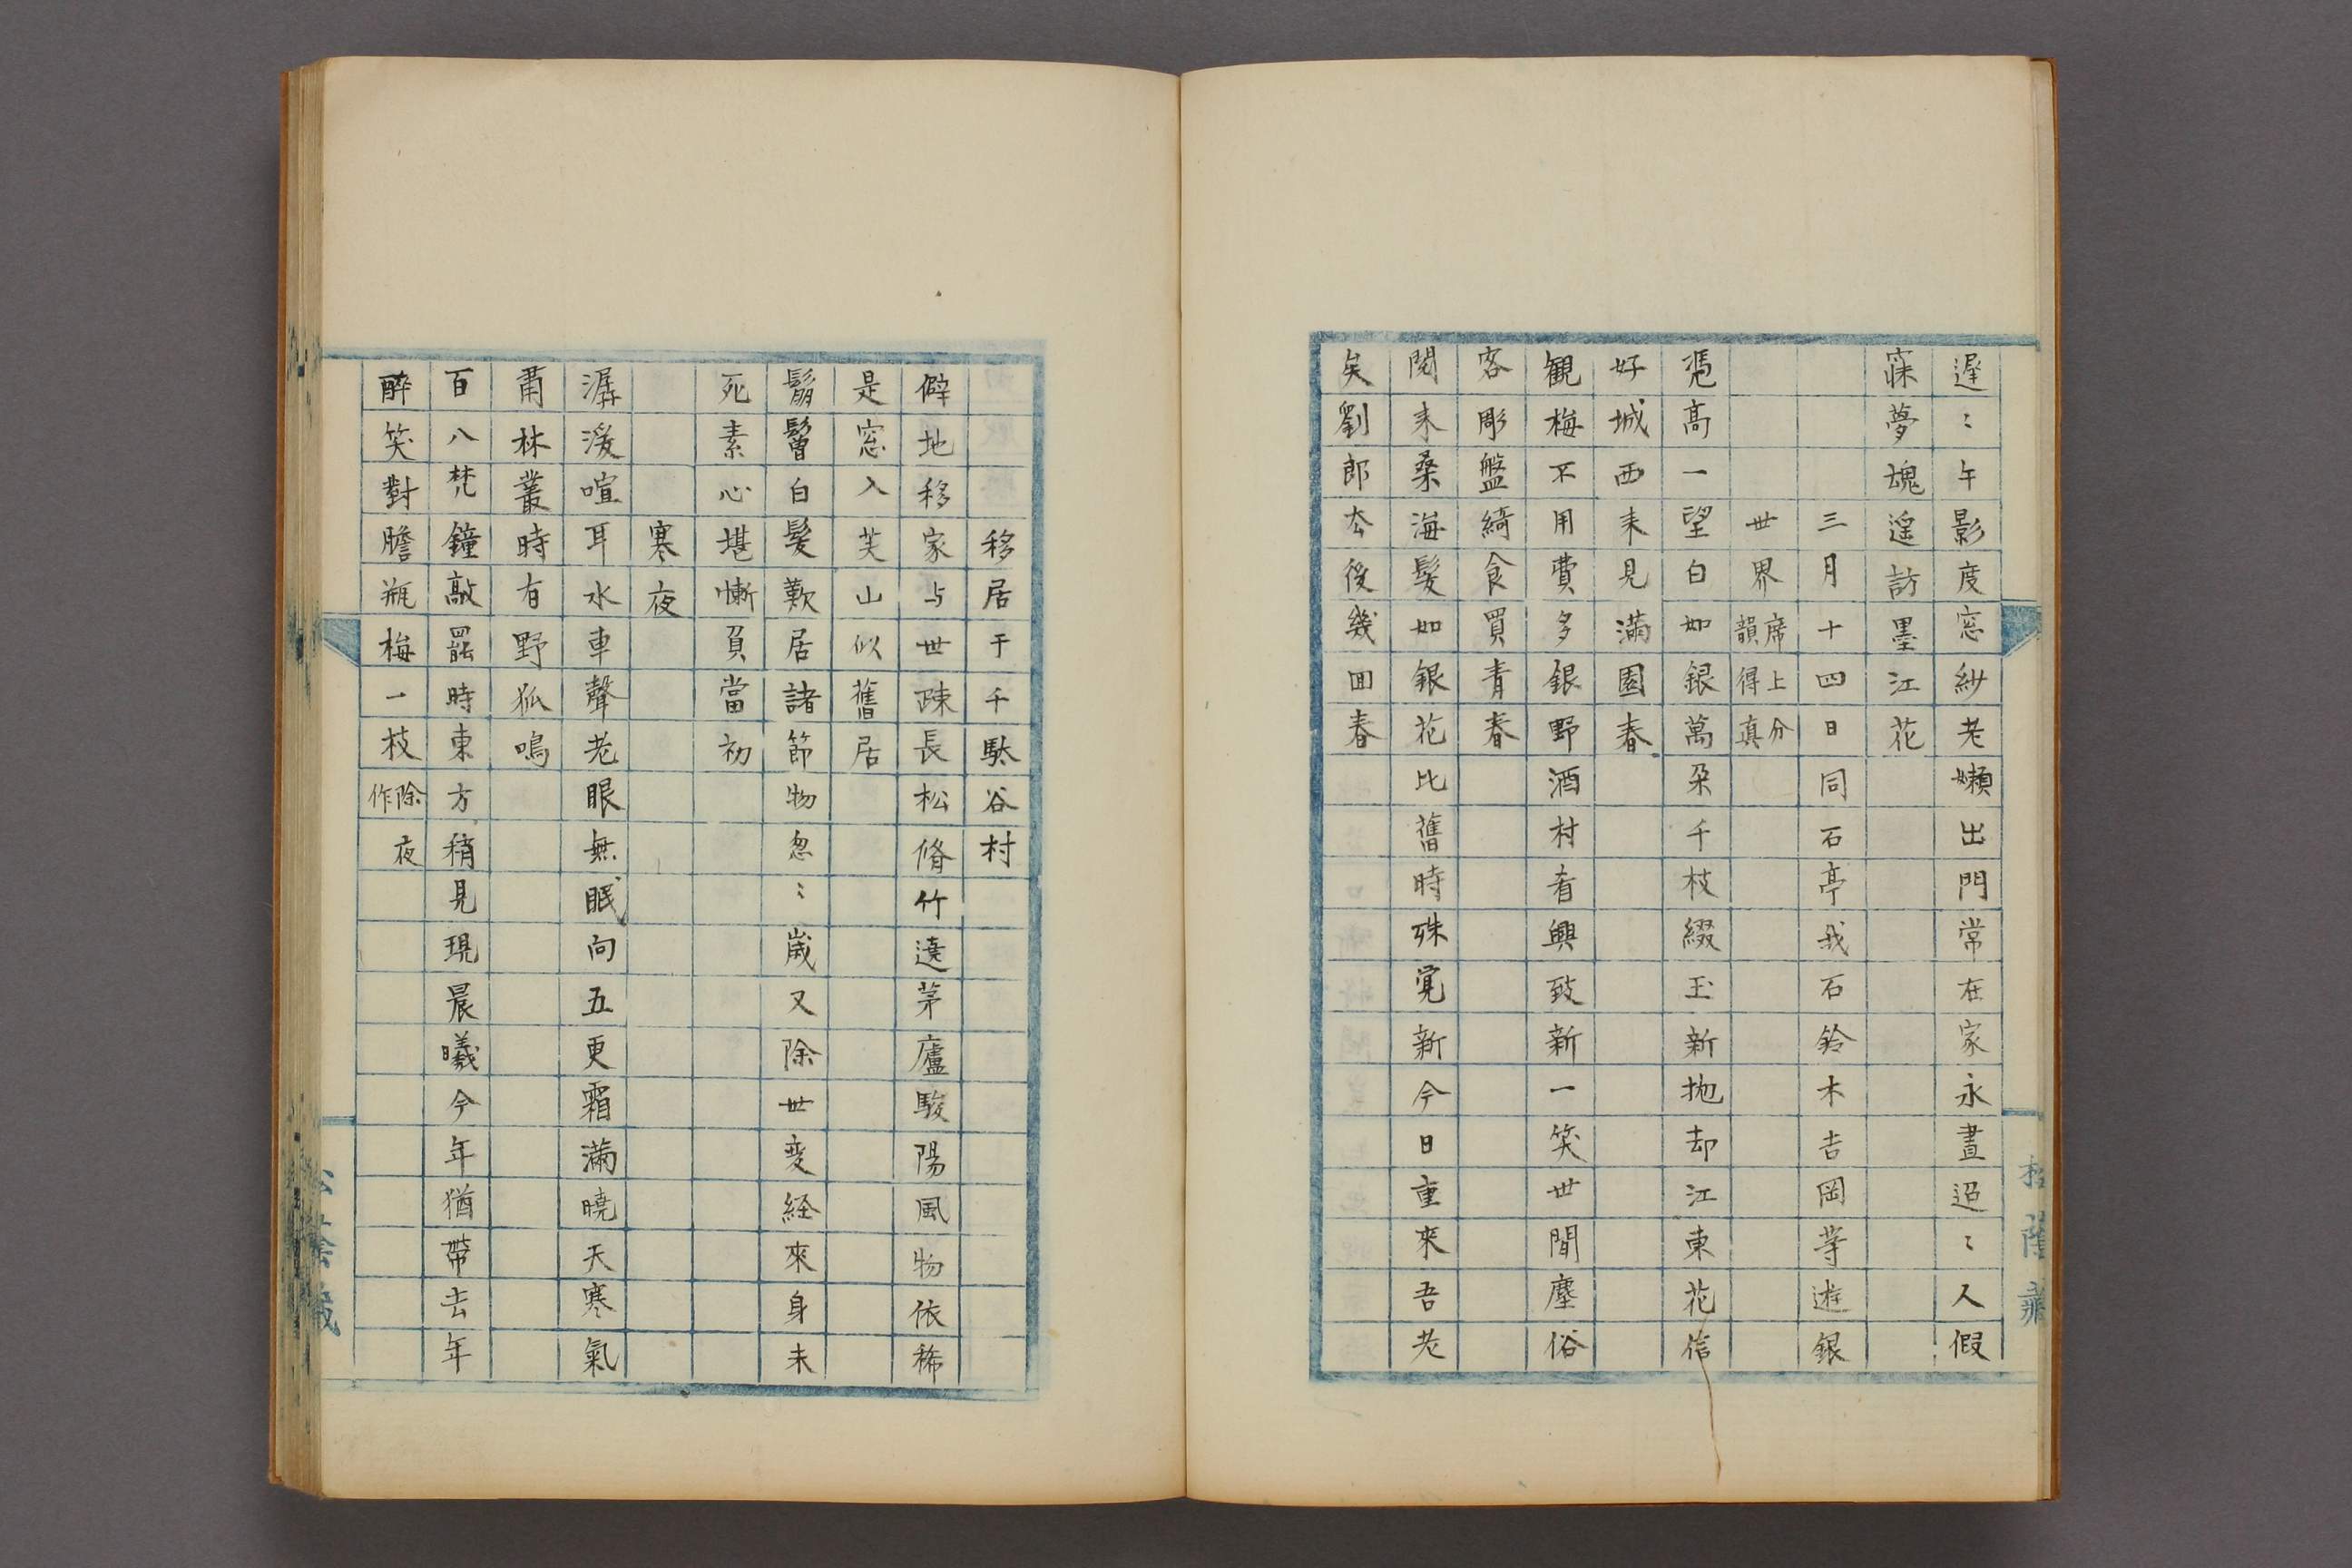 遅〻午影度窓紗老嬾出門常在家永晝迢〻人假
寐夢魂遥訪墨江花
三月十四日同石亭我石鈴木吉岡等遊銀
世界席上分韻得真
凴高一望白如銀萬朶千枝綴玉新抛却江東花信
好城西来見滿園春
観梅不用費多銀野酒村肴興致新一笑世間塵俗
客彫盤綺食買青春
閲来桑海髪如銀花比舊時殊覚新今日重來吾老
矣劉郎去後幾回春
移居于千駄谷村
僻地移家与世疎長松脩竹遶茅廬駿陽風物依稀
是窓入芙山似舊居
鬅鬙白髪歎居諸節物怱〻歳又除世変経來身未
死素心堪慚負當初
寒夜
潺湲喧耳水車聲老眼無眠向五更霜滿曉天寒氣
肅林叢時有野狐鳴
百八梵鐘敲罷時東方稍見現晨曦今年猶帶去年
醉笑對膽瓶梅一枝除夜作